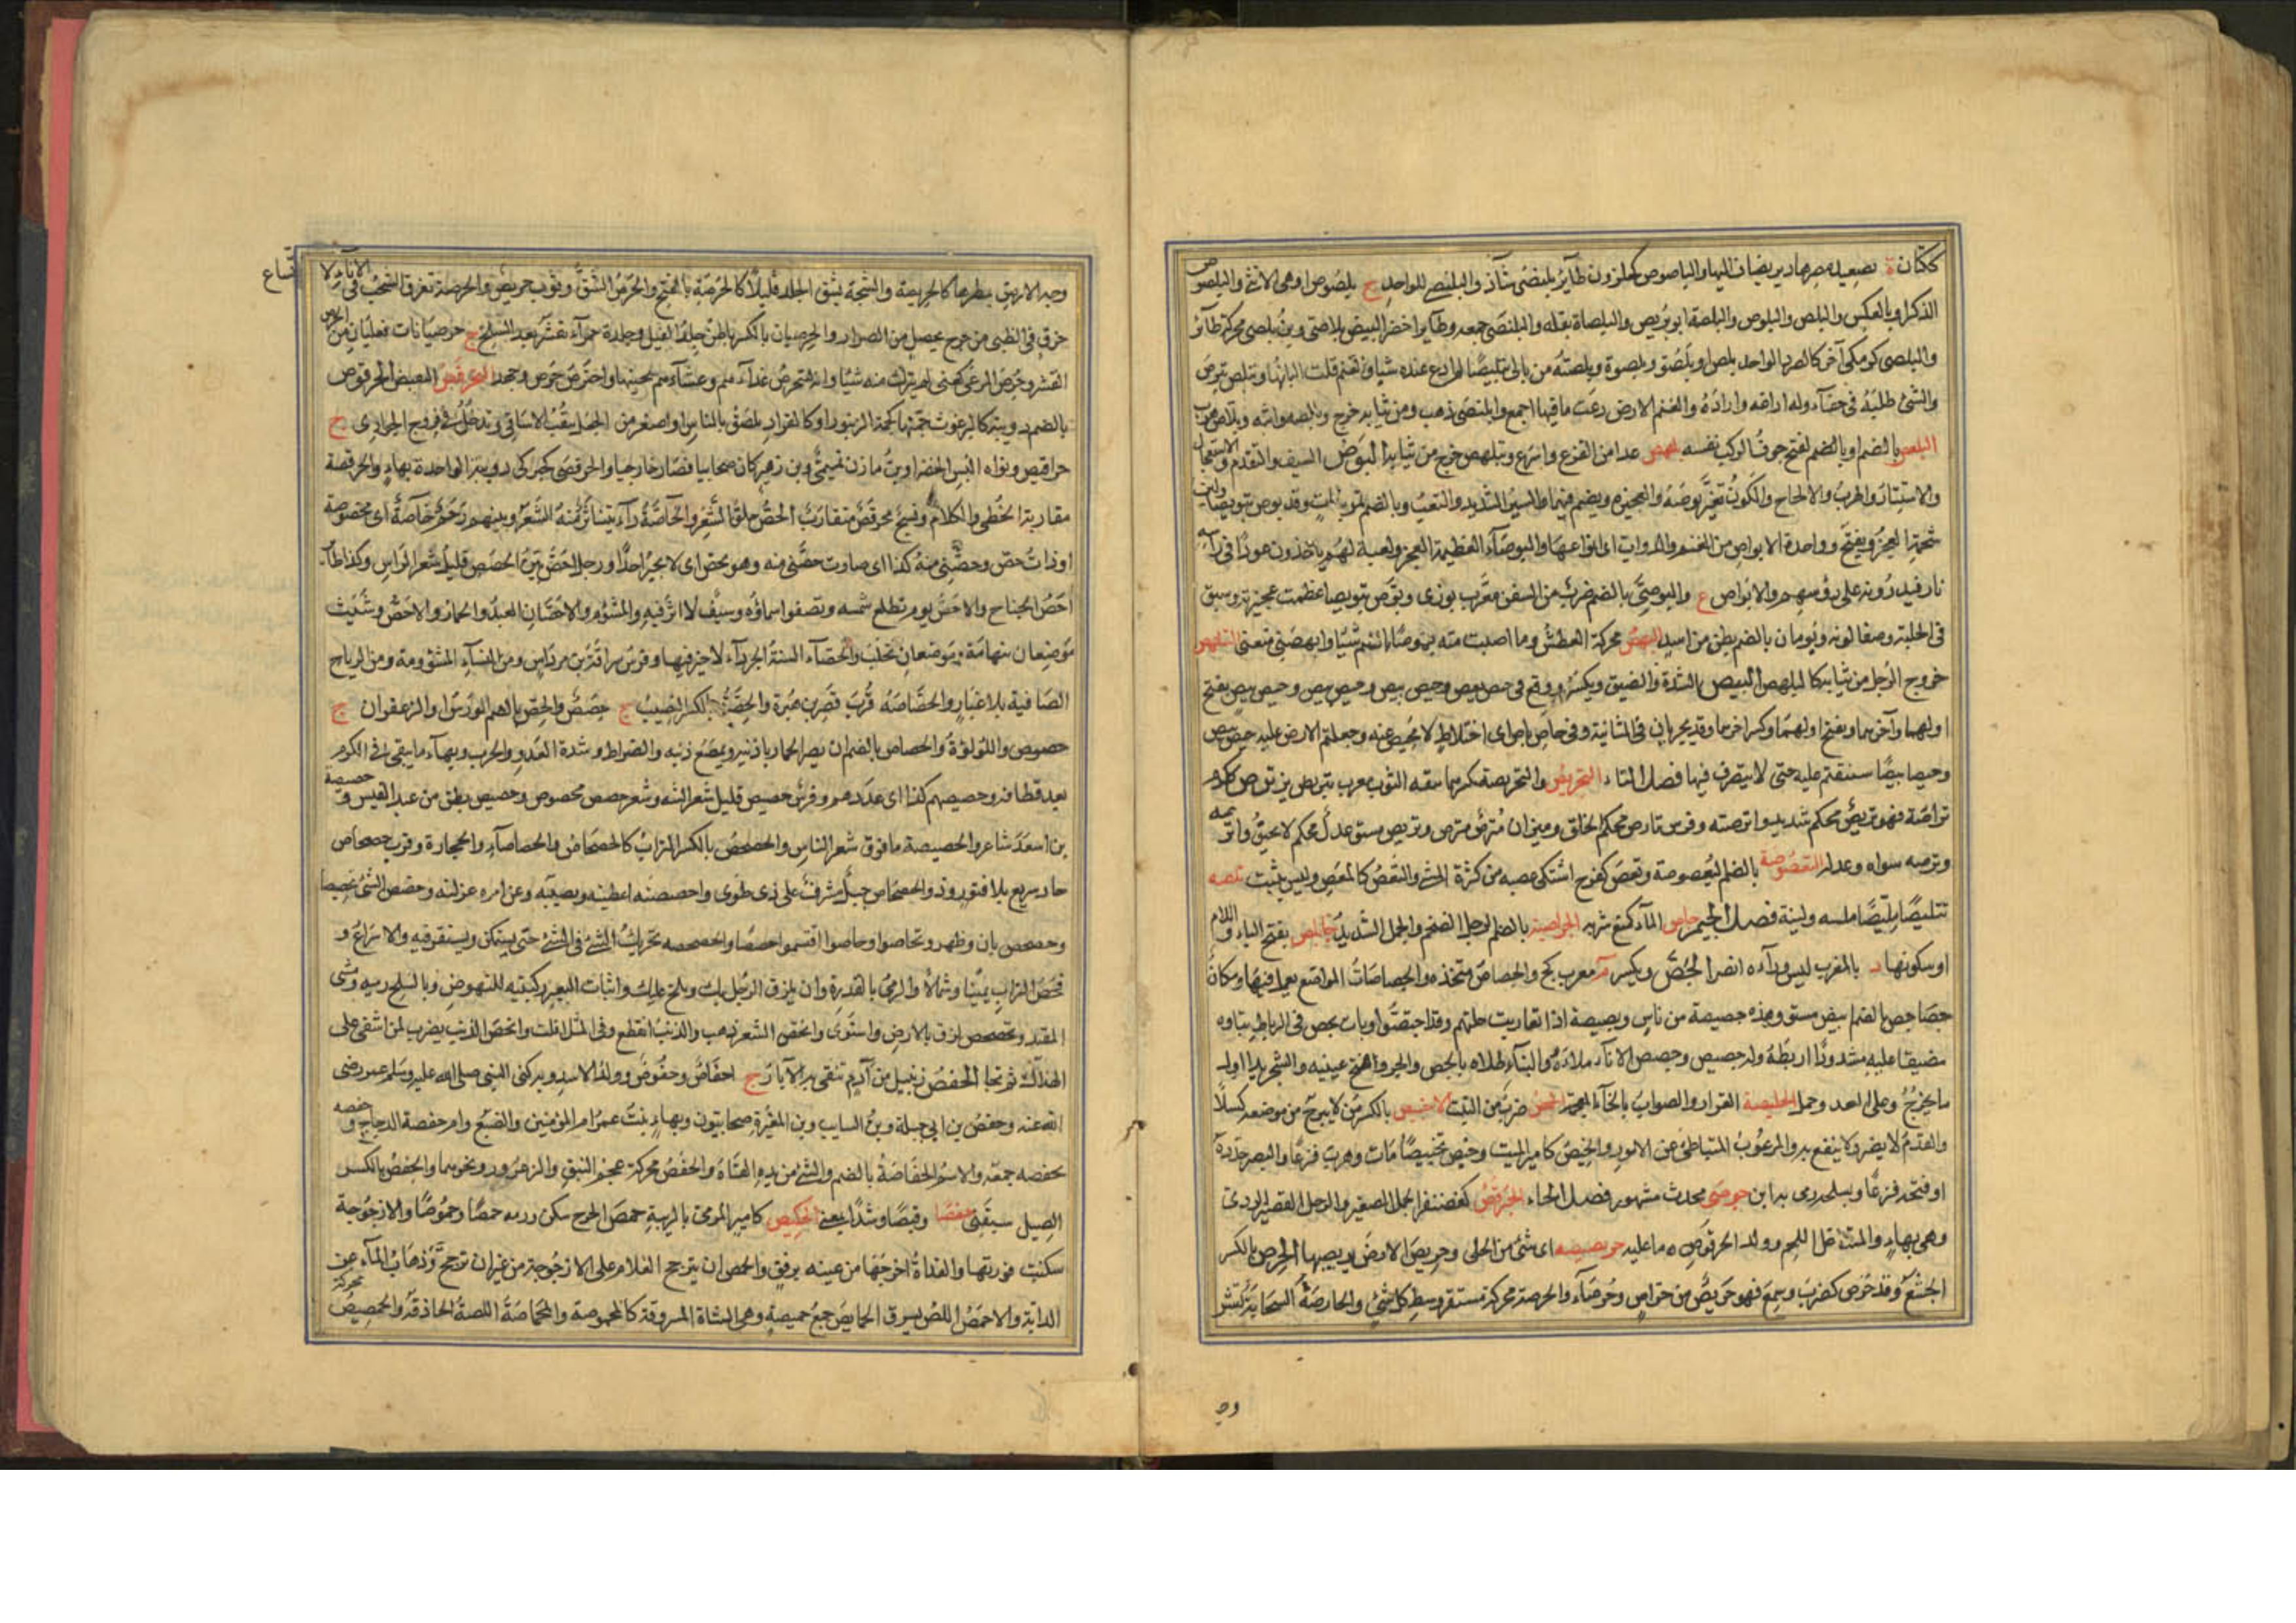 ككتان ة بصعيد مصرها دير يضاف اليها والبلصوص كحلزون طاير بلنصى شاذ والبلنصى للواحد ج بلصوص او هى الانثى والبلصوص
الذكر او بالعكس والبلص والبلوص والبلصة ابو بريص والبلصاة بقلة والبلنصى جمعه وطاير اخضر البيض بلاصى وبن بلصى محركة طائر
والبلصى كومكى آخر كالصرد الواحد بلصو او بلصو وبلصوة وبلصته من مالى تبليصا لم ادع عنده شيا والغنم قلت البانها وتبلص تبرص
والشئ طلبه فى خفاء وله اراغه واراده والغنم الارض رعت ما فيها اجمع وابلنصى ذهب ومن ثيابه خرج وبالصه واثبه
البلعص بالضم او بالضم لفتح جوفا لوكب نفسه بلهص عدا من الفزع واسرع وتبلهص خرج من ثيابه البوص السبق والتقدم والاستعجال
والاستتار والهرب والالحاح واللون تغير بوصه والعجيزة ويضم فيهما والسير الشديد والتعب وبالضم وقد بوص تبويصا
شحمة العجز ويفتح وواحدة الابواص من الغنم والدواب اى انواعها والبوصآء العظيمة العجز ولعبة لهم ياخذون عودا فى راسه
نار فيديرونه على رؤسهم والابواص ع والبوصى بالضم ضرب من السفن معرب بوزى وبوص تبويصا عظمت عجيزته وسبق
فى الحلبة وصفا لونه وبومان بالضم بطن من اسد البهص محركة العطش وما اصبت منه بهوصا بالضم شيئا وابهصنى منعنى التبلهص
خروج الرجل من ثيابه كالبلهص البيص بالشدة والضيق ويكسر ووقع فى حيص بيص وحيص بيص وحيص بيص وحيص بيص بفتح
اولهما وآخرهما وبفتح اولهما وكسر اخرهما وقد يجريان فى الثانية وفى حاص باص اى اختلاط لا محيص عنه وجعلتم الارض عليه حيص بيص
وحيصا بيصا سننقم عليه حتى لا يتصرف فيها فصل التاء التخريص والتخريصة بكسرهما بنيقة الثوب معرب تيريز ترص ككرم
تراصة فهو تريص محكم شديد واترصته وفرس تارص محكم الخلق وميزان مترص وتريص مستو عدل محكم لا يحيف واترصه
وترصه سواه وعدله التعصوصة بالضم البعصوصة وتعص كفرح اشتكى عصبه من كثرة المشى والتعص كالمعص وليس بثبت تلصه
تتليصا مليصا ملسه ولينه فصل الجيم جاص المآء كمنع شربه الجراصية بالضم الرجل الضخم والجمل الشديد جابلص بفتح الباء واللام
او سكونها د بالمغرب ليس وراءه انس الجص ويكسر م معرب كج والجصاص متخذه والجصاصات المواضع يعمل فيها ومكان
جصاجص بالضم ابيض مستو وهذه جصيصة من ناس وبصيصة اذا تقاربت حلتهم وقد اجتصوا وبات يجص فى الرباط يتاوه
مضيقا عليه مشدودا ربطه وله جصيص وجصص الاناء ملاه والبناء طلاه بالجص والجرو افتح عينيه والشجر بدا اول
ما يخرج وعلى العدو حمل الجلبصة الفرار والصواب بالخاء المعجمة الجنص ضرب من النبت الاجنيص بالكسر من لا يبرح من موضعه كسلا
والفدم لا يضر ولا ينفع والمرعوب المتباطئ عن الامور والجنيص كامير الميت وجنص تجنيصا مات وهرب فزعا والبصر حدده
او فتحه فزعا وبسلحه رمى به ابن جوصى محدث مشهور فصل الحاء الحبرقص كغضنفر الجمل الصغير والرجل القصير الردئ
وهى بهاء والمتداخل اللحم وولد الحرقوص ما عليه حربصيصة اى شئ من الحلى وحربص الارض بربصها الحرص بالكسر
الجشع وقد حرص كضرب وسمع فهو حريص من حراص وحرصآء والحرصة محركة مستقر وسط كل شئ والحارصة السحابة تقشر
وجـ
وجه الارض بمطرها كالحريصة والشجة تشق الجلد قليلا كالحرصة بالفتح والحرص الشق وثوب حريص والحرصة تفرق الشخب فى الاناء
خرق فى الظبى من جرح يحصل من الصرار والحرصيان بالكسر باطن جلد الفيل وجلدة حمرآء تقشر بعد السلخ ج حرصيانات فعليان من الحرص
القشر وحرص المرعى كعنى لم يترك منه شيئا وانه ليتحرص غدآءهم وعشآءهم يتحينها واحترص حرص وجهد الحرقص القبض الحرقوص
بالضم دويبة كالبرغوث حمتها كحمة الزنبور او كالقراد يلصق بالناس او اصغر من الجعل ينقب الاساقى ويدخل فى فروج الجوارى ج
حراقيص ونواة البسر الخضرا وبن مازن تميمى وبن زهير كان صحابيا فصار خارجيا والحرقصى كجبركى دويبة الواحدة بهاء والحرقصة
مقاربة الخطى والكلام ونسج محرقص متقارب الحص حلق الشعر والحاصة داء يتناثر منه الشعر وبينهم رحم حاصة اى محصوصة
او ذات حص وحصنى منه كذا اى صارت حصتى منه وهو يحص اى لا يجير احدا ورجل احص بين الحصص قليل شعر الراس وكذا طائر
احص الجناح والاحص يوم تطلع شمسه وتصفو سماؤه وسيف لا اثر فيه والمشئوم والاحصان العبد والحمار والاحص وشبيث
موضعان بتهامة وموضعان بحلب والحصآء السنة الجردآء لا خير فيها وفرس سراقة بن مرداس ومن النسآء المشئومة ومن الرياح
الصافية بلا غبار والحصاصة قرب قصر بن هبيرة والحصة بالكسر النصيب ج حصص والحص بالضم الورس او الزعفران ج
حصوص واللؤلؤة والحصاص بالضم ان يصر الحمار باذنيه ويمصع بذنبه والضراط وشدة العدو والجرب وبهآء ما يبقى فى الكرم
بعد قطافه وحصيصهم كذا اى عددهم وفرس حصيص قليل شعر الثنة وشعر حصص محصوص وحصيص بطن من عبد القيس وحصيصة
بن اسعد شاعر والحصيصة ما فوق شعر الناس والحصحص بالكسر التراب كالحصحاص والحصاصآء والحجارة وقرب حصحاص
حاد سريع بلا فتور وذو الحصحاص جبل مشرف على ذى طوى واحصصته اعطيته نصيبه وعن امره عزلته وحصص الشئ تحصيصا
وحصحص بان وظهر وتحاصوا وحاصوا اقتسموا حصصا والحصحصة تحريك الشئ فى الشئ حتى يستمكن ويستقر فيه والاسراع و
فحص التراب يمينا وشمالا والرمى بالعذرة وان يلزق الرجل بك ويلح عليك واثبات البعير ركبتيه للنهوض وبالسلح رميه ومشى
المقيد وتحصحص لزق بالارض واستوى وانحص الشعر ذهب والذنب انقطع وفى المثل افلت وانحص الذنب يضرب لمن اشفى على
الهلاك ثم نجا الحفص زنبيل من آدم تنقى به الآبار ج احفاص وحفوص وولد الاسد وبه كنى النبى صلى الله عليه وسلم عمر رضى
الله عنه وحفص بن ابى جبلة وبن السايب وبن المغيرة صحابيون وبهاء بنت عمر ام المؤمنين والضبع وام حفصة الدجاج وحفصه
يحفصه جمعه والاسم الحفاصة بالضم والشئ من يده القاه والحفص محركة عجم النبق والزعرور ونحوهما والحفص بالكسر
الصيل سبقنى حفصا وقبصا وشدا بمعنى الحكيص كامير المرمى بالريبة حمص الجرح سكن ورمه حمصا وحموصا والارجوحة
سكنت فورتها والقذاة اخرجها من عينه برفق والحمص ان يترجح الغلام على الارجوحة من غير ان ترجح وذهاب المآء عن
الدابة والاحمص اللص يسرق الحمايص جمع حميصة وهى الشاة المسروقة كالمحموصة والمحماصة اللصة الحاذقة والحمصيص محركة